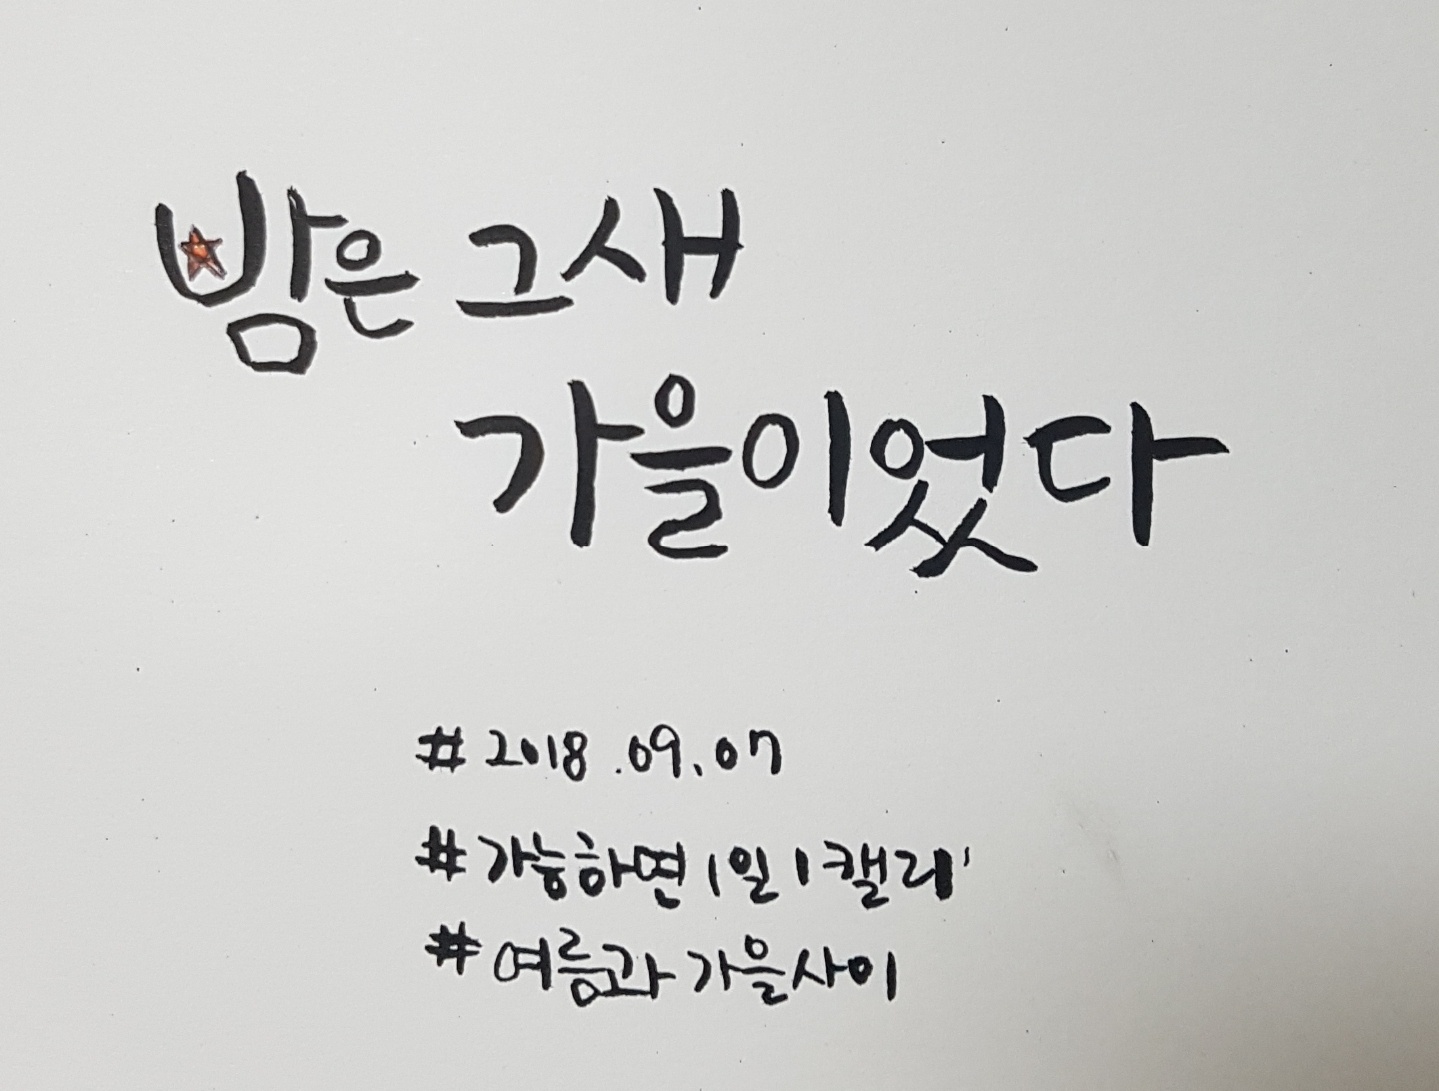 밤은 그새
가을이었다
#2018.09.07
#가능하면1일1캘리
#여름과가을사이